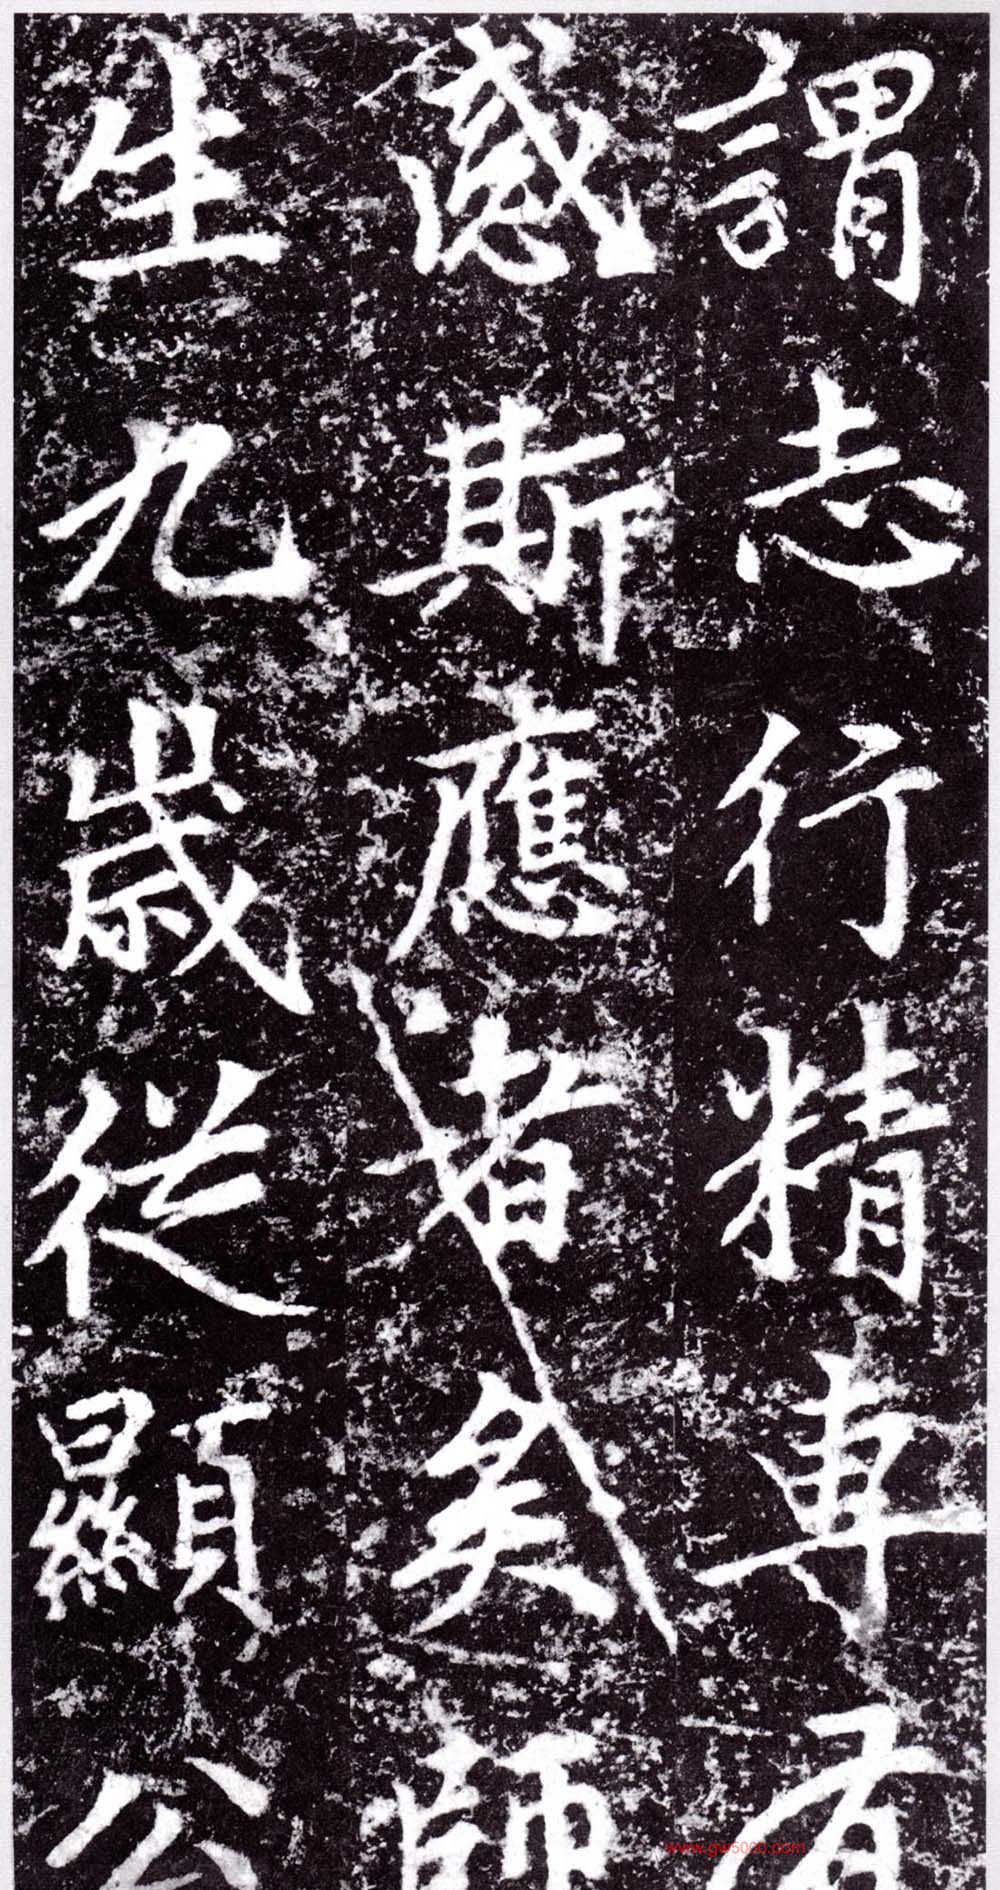 謂志行精專有
感斯應者矣師
生九歲從顯公
www.gw5000.com